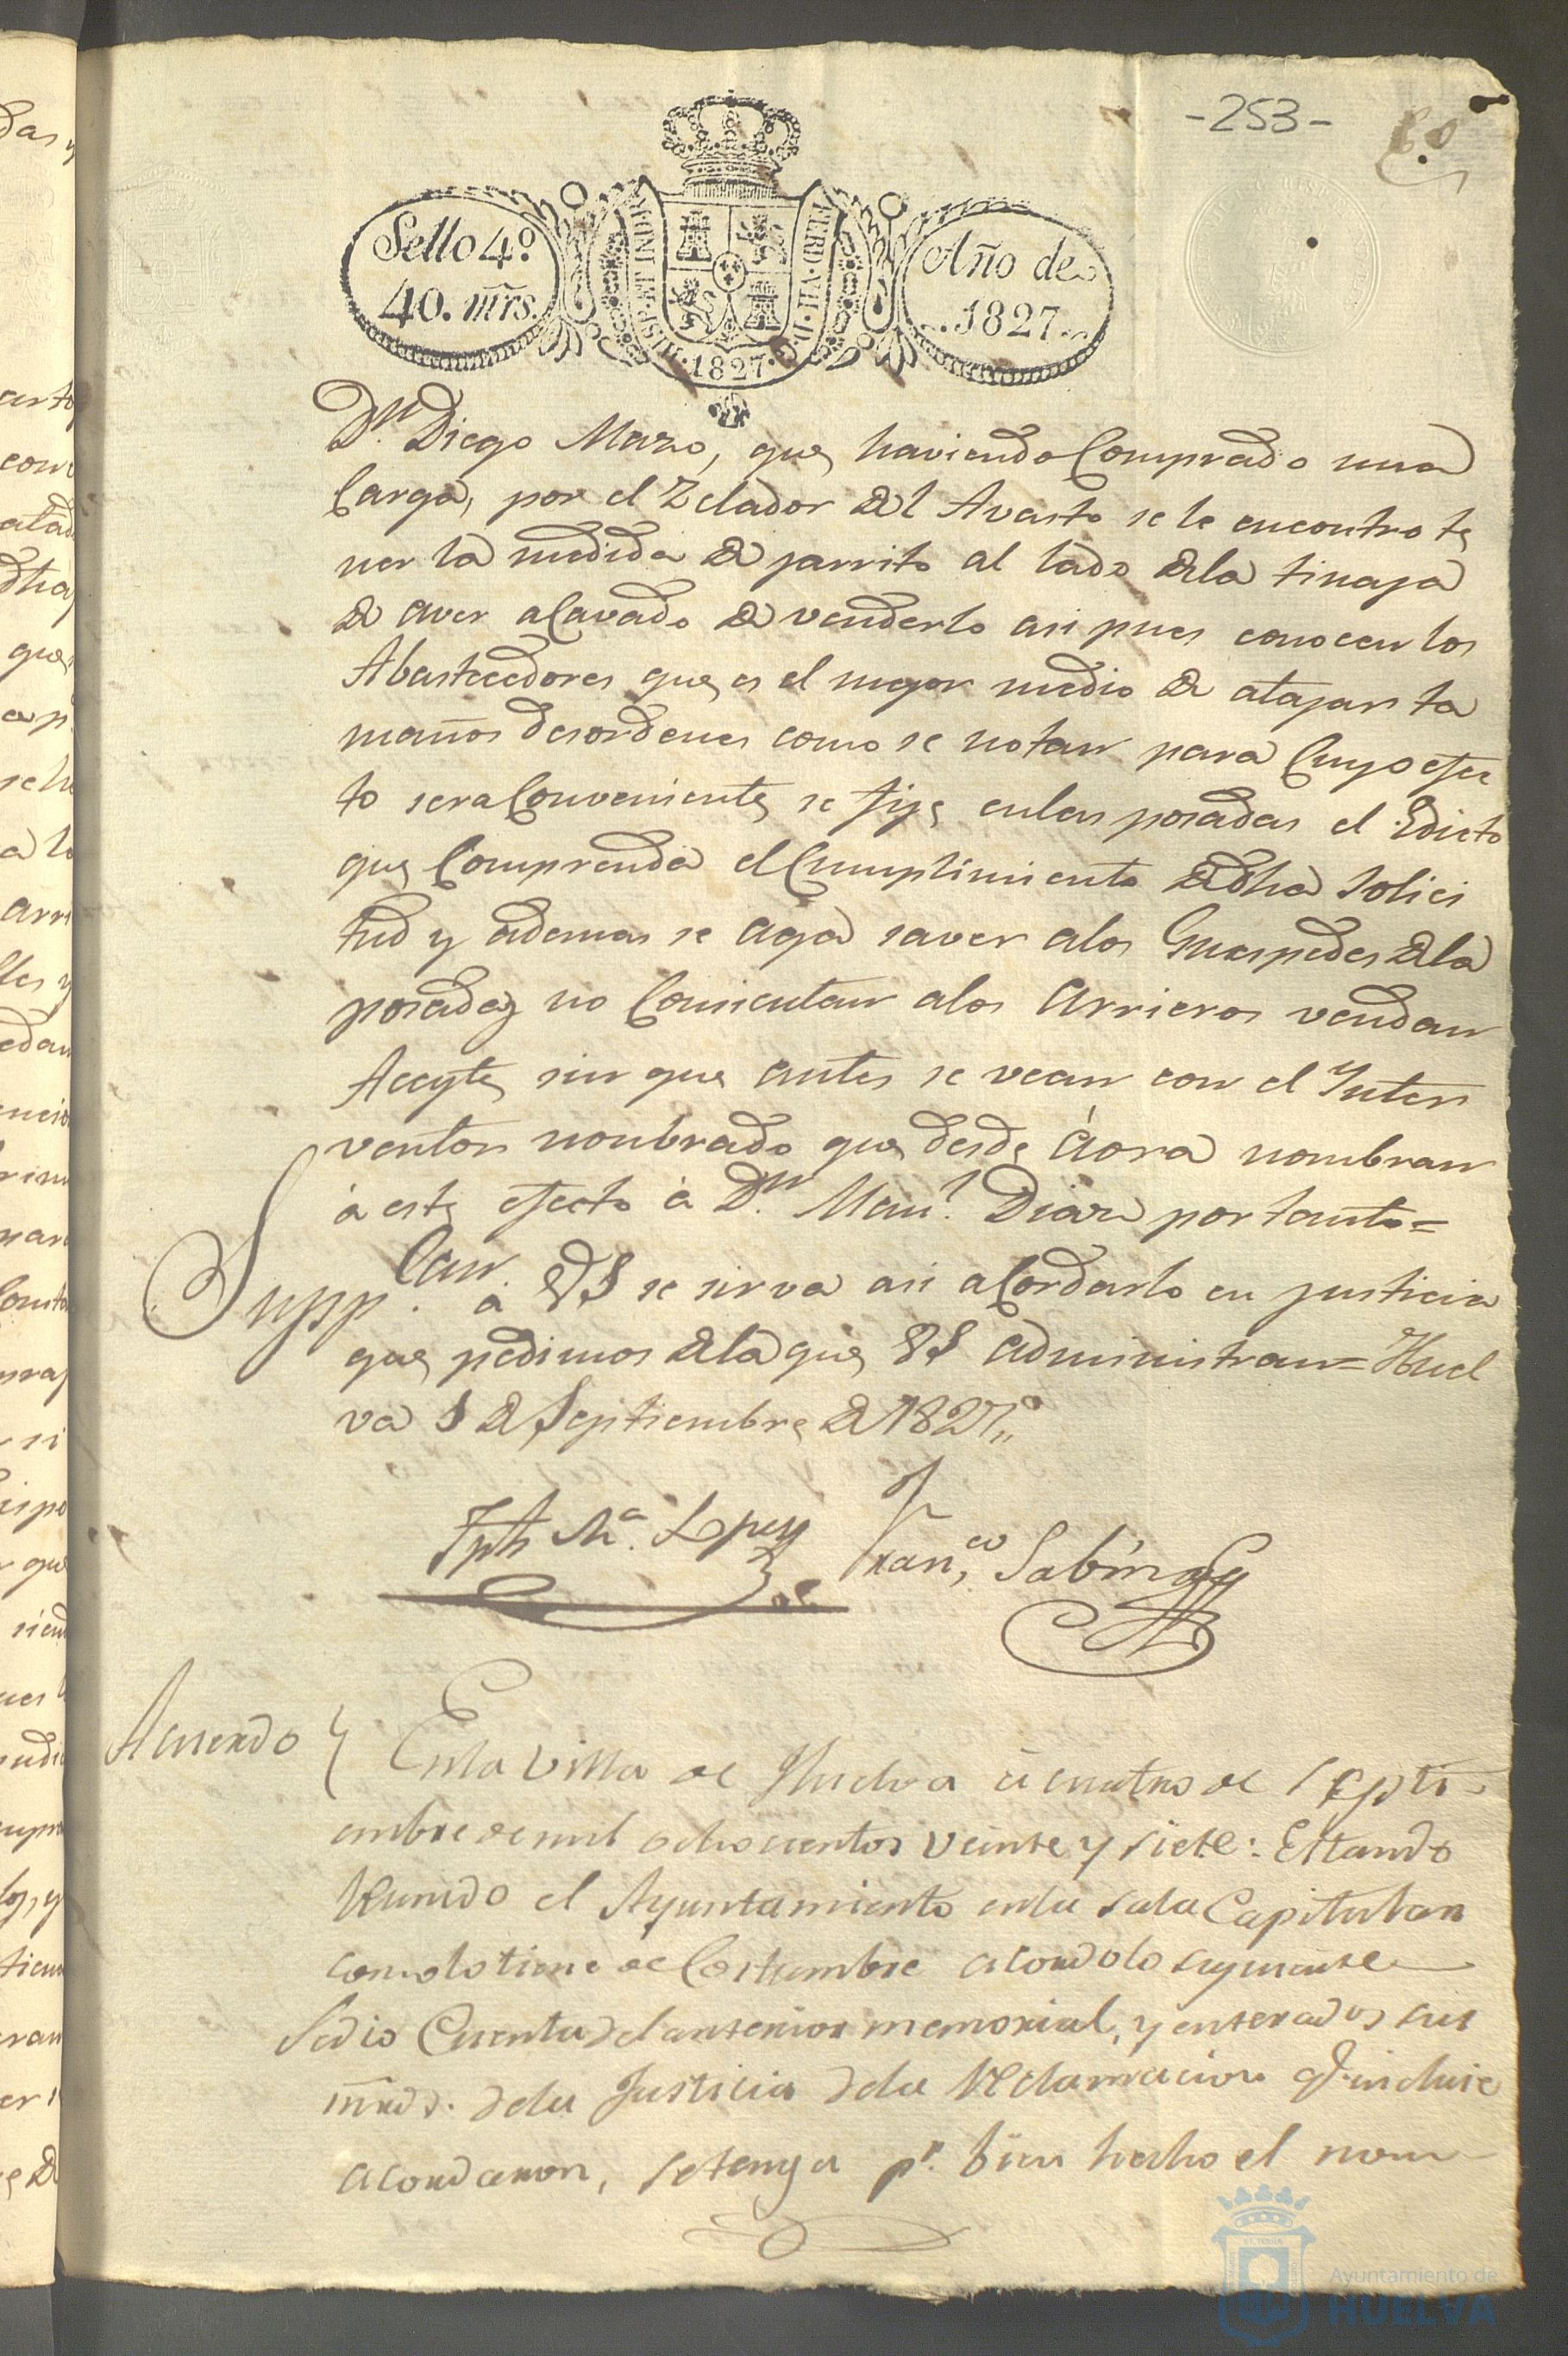 -253-
Sello 4º
40. mrs.
HISP. ET IND. R.
FERD. VII. D. G.
1827
Año de
1827
Dn. Diego Mazo, que haviendo Comprado una
Carga, por el Zelador del Avasto se le encontro te
ner la medida de jarrito al lado dela tinaja
de aver acavado de venderlo asi pues conocen los
Abastecedores que es el mejor medio de atajar ta
maños desordenes como se notan para Cuyo efec
to sera Conveniente se fije enlas posadas el Edicto
que Comprenda el Cumplimiento de dha solici
tud y ademas se aga saver alos Guespedes dela
posadas no Consientan alos Arrieros vendan
Aceyte sin que antes se vean con el Inter
ventor nonbrado que desde áora nombran
á este efecto á Dn. Manl. Diaz por tanto=
Suppcan. a VS se sirva asi aCordarlo en justicia
que pedimos dela que VS administran= Huel
va 1 de Septiembre de 1827,,
Jph Ma. Lopez
Franco, Sabin
Acuerdo
Enla Villa de Huelva á cuatro de Septi-
embre de mil ochocientos veinte y siete: Estando
Reunido el Ayuntamiento enla sala Capitular
como lo tiene de Costumbre acordo lo siguiente
Se dio Cuenta del anterior memorial, y enterados sus
mrds. dela Justicia dela Reclamacion q. incluie
acordaron, se tenga pr. bien hecho el nom-
Ayuntamiento de
HUELVA